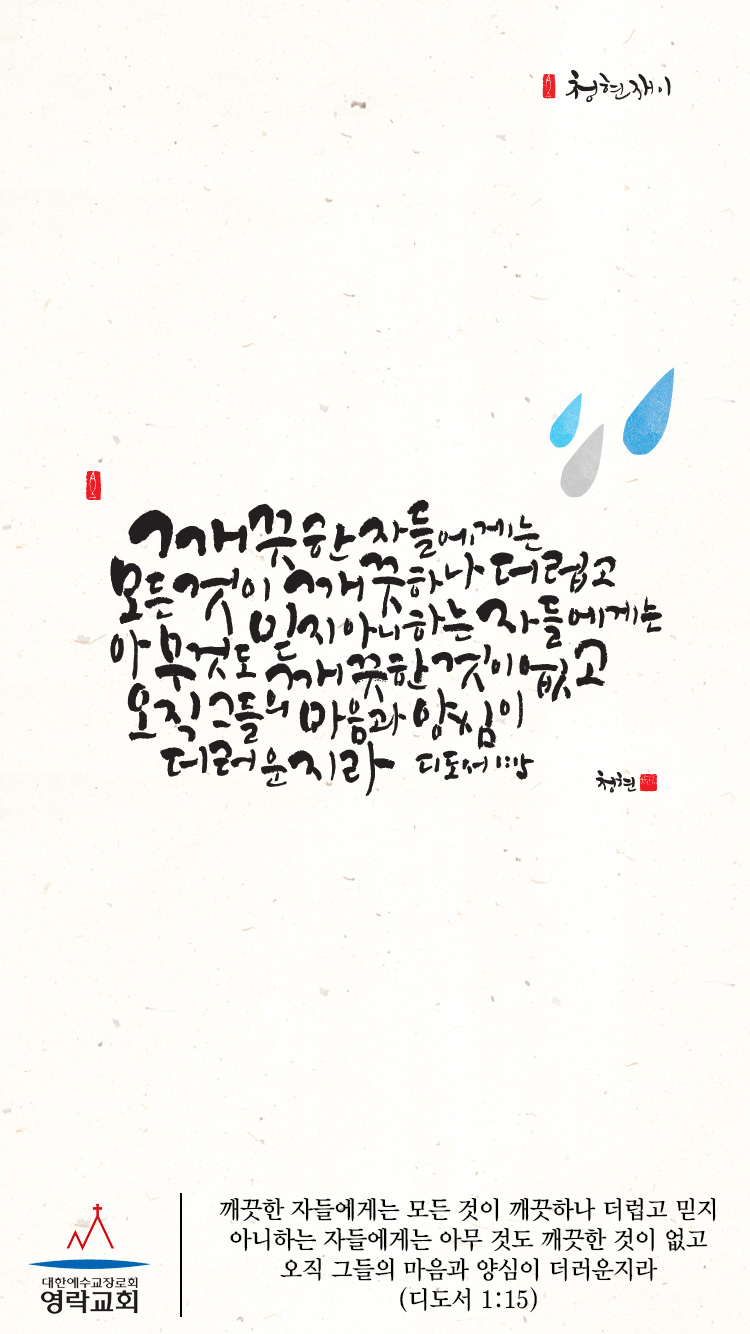 청현재이
깨끗한 자들에게는
모든 것이 깨끗하나 더럽고
아무것도 믿지 아니하는 자들에게는
깨끗한 것이 없고
오직 그들의 마음과 양심이
더러운지라 디도서 1:15
청현
대한예수교장로회
영락교회
깨끗한 자들에게는 모든 것이 깨끗하나 더럽고 믿지
아니하는 자들에게는 아무 것도 깨끗한 것이 없고
오직 그들의 마음과 양심이 더러운지라
(디도서 1:15)